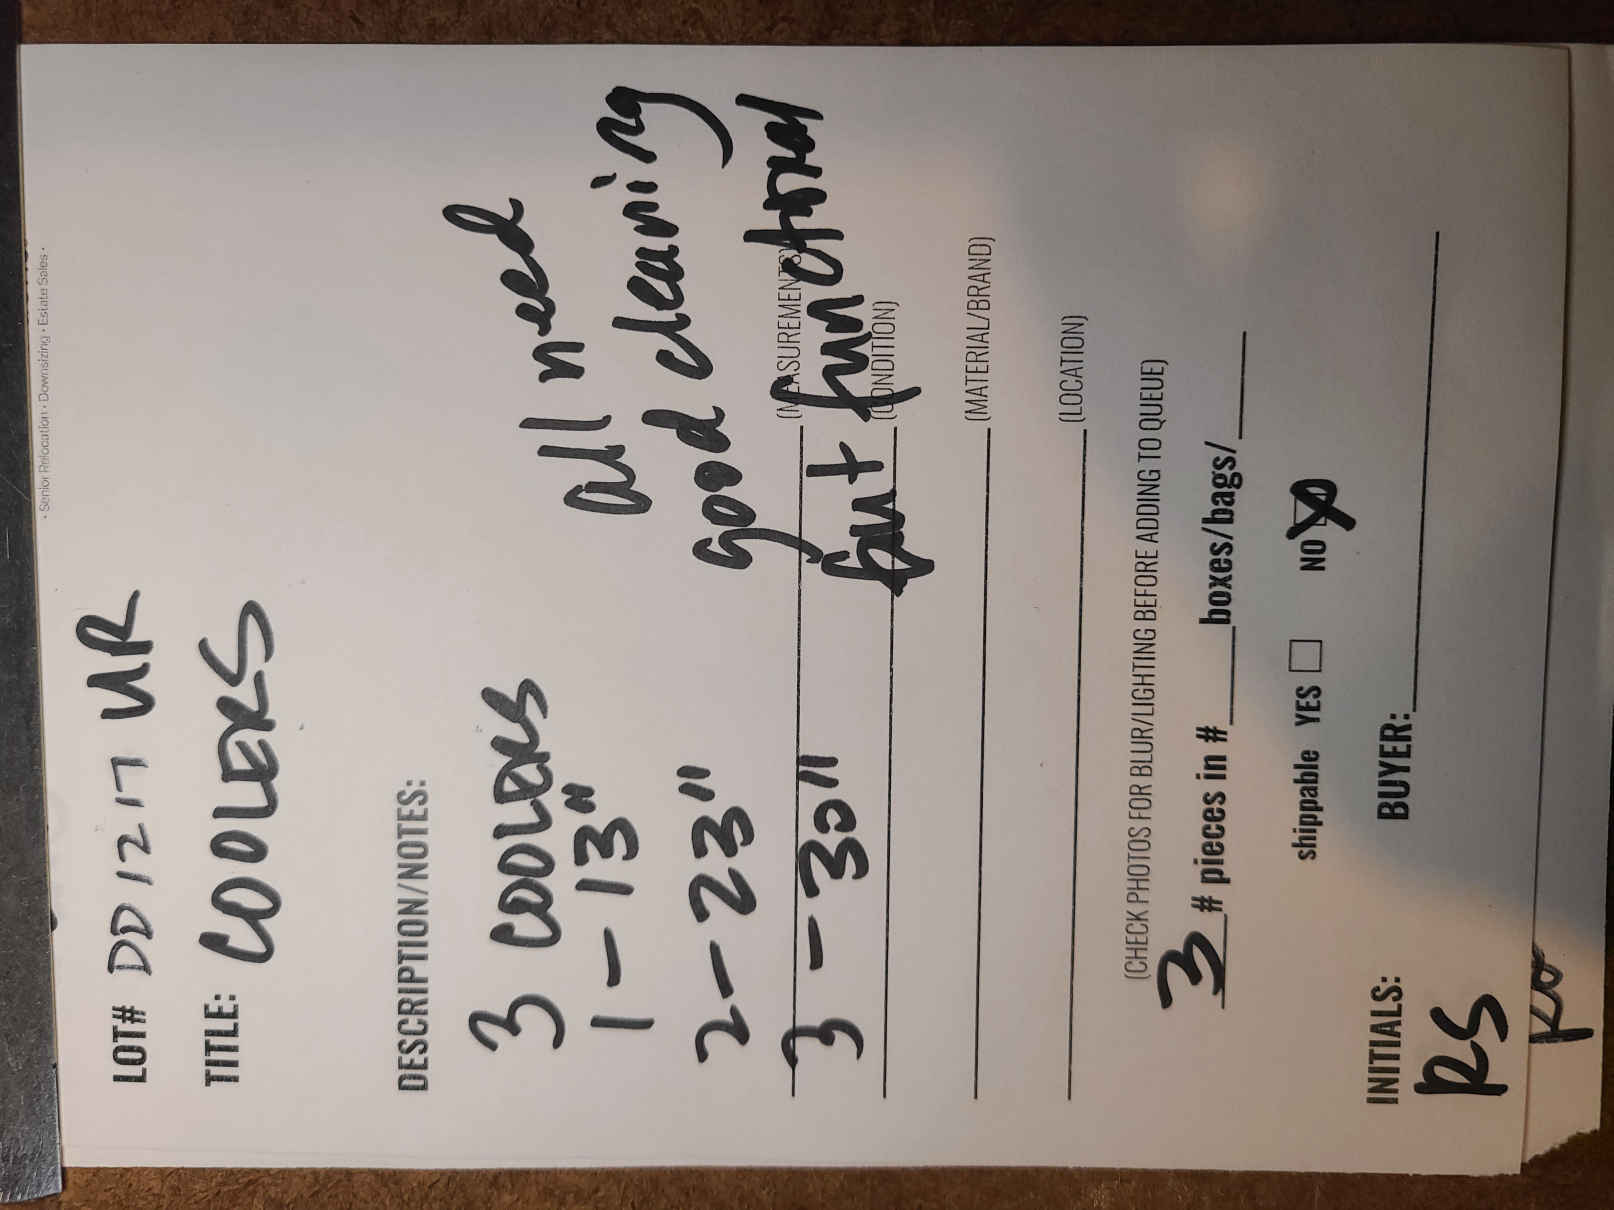 · Senior Relocation · Downsizing · Estate Sales ·
LOT# DD 1217 UR
TITLE: COOLERS
DESCRIPTION/NOTES:
3 COOLERS
1 - 13" all need
2 - 23" good cleaning
3 - 30" but functional
(MEASUREMENTS)
(CONDITION)
(MATERIAL/BRAND)
(LOCATION)
(CHECK PHOTOS FOR BLUR/LIGHTING BEFORE ADDING TO QUEUE)
3 # pieces in # boxes/bags/
shippable YES ☐ NO ☒
INITIALS: BUYER:
RS